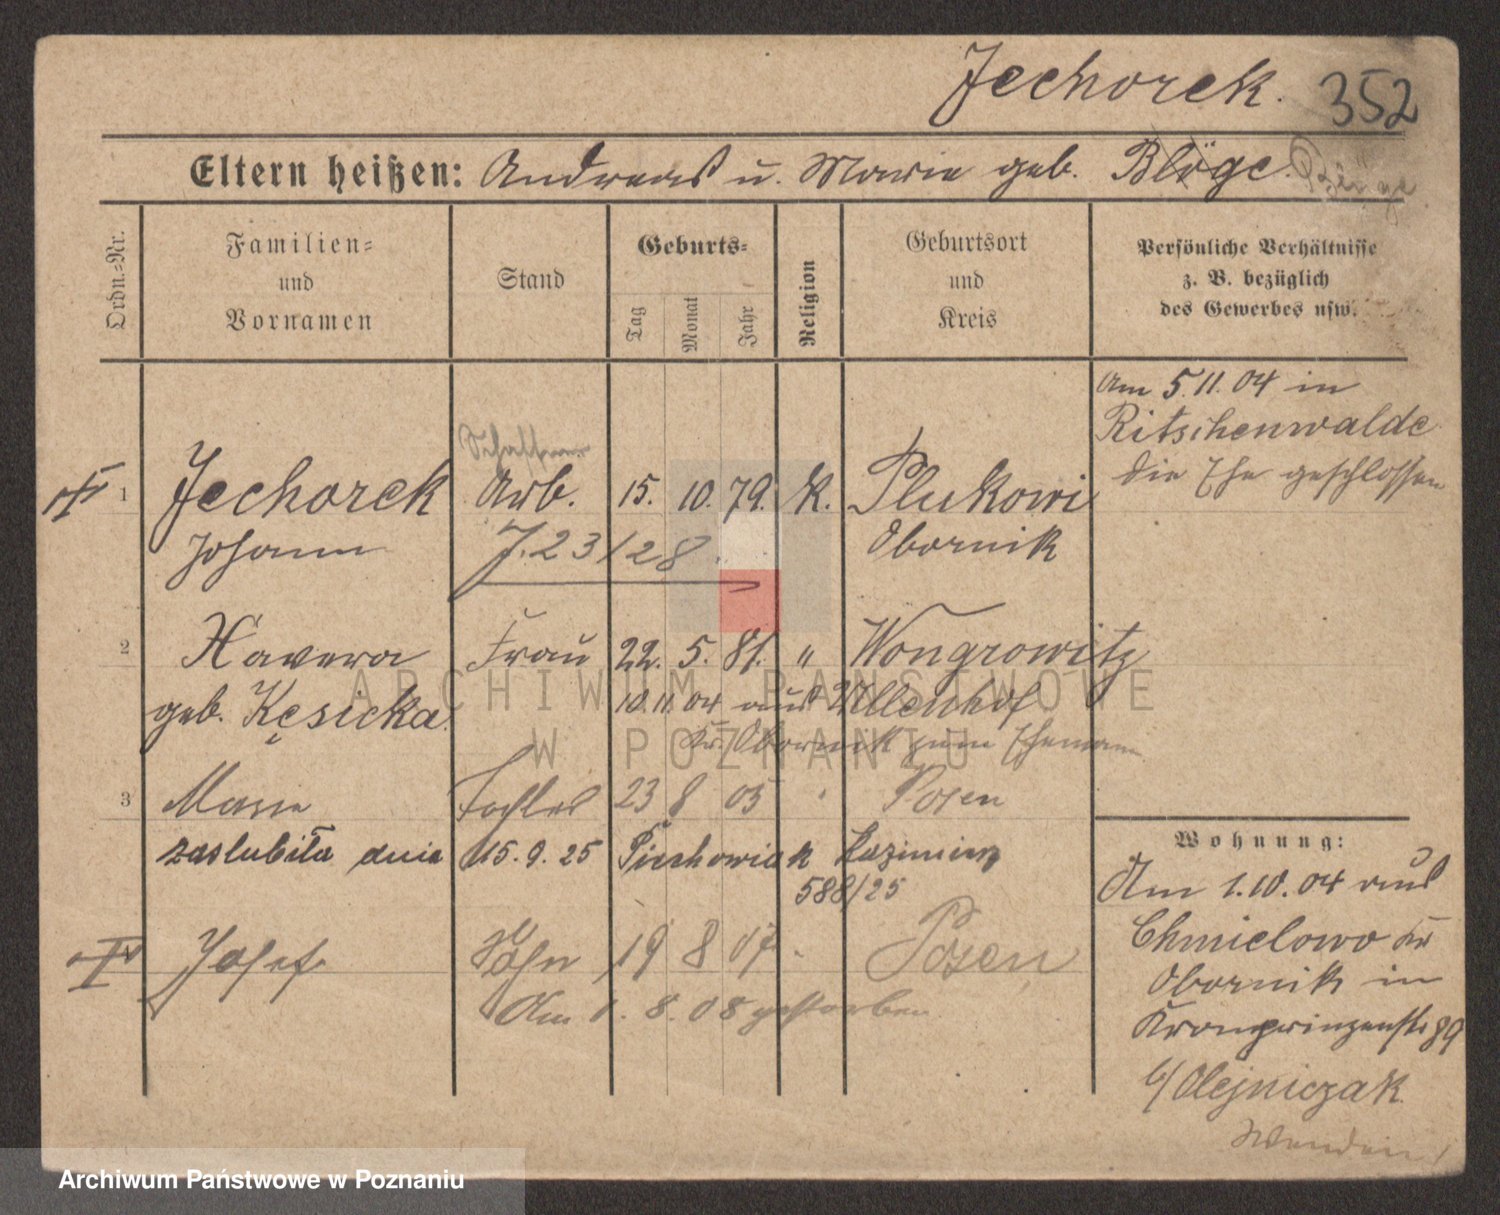 Jechorek. 352
Eltern heißen: Andreas u. Marie geb. Blöge.
Ordn.-Nr.
Familien- und Vornamen
Stand
Geburts-
Tag
Monat
Jahr
Religion
Geburtsort und Kreis
Persönliche Verhältnisse z. B. bezüglich des Gewerbes usw.
Am 5.11.04 in
Ritschenwalde
die Ehe geschlossen
1 Jechorek Arb. 15. 10. 79. K. Plukowi
Johann J. 23/28. Obornik
2 Xavera Frau 22. 5. 81. " Wongrowitz
geb. Kęsicka 10.11.04 aus Ullenhof
Kr. Obornik zum Ehemann
3 Marie Tochter 23 8 05 " Posen
zaślubiła dnia 15.9.25 Piechowiak Kazimierz
588/25
Josef Sohn 19 8 07 Posen
Am 1.8.08 gestorben
Wohnung:
Am 1.10.04 aus
Chmielowo Kr
Obornik in
Kronprinzenstr 89
b/Olejniczak
ARCHIWUM PAŃSTWOWE
W POZNANIU
Archiwum Państwowe w Poznaniu